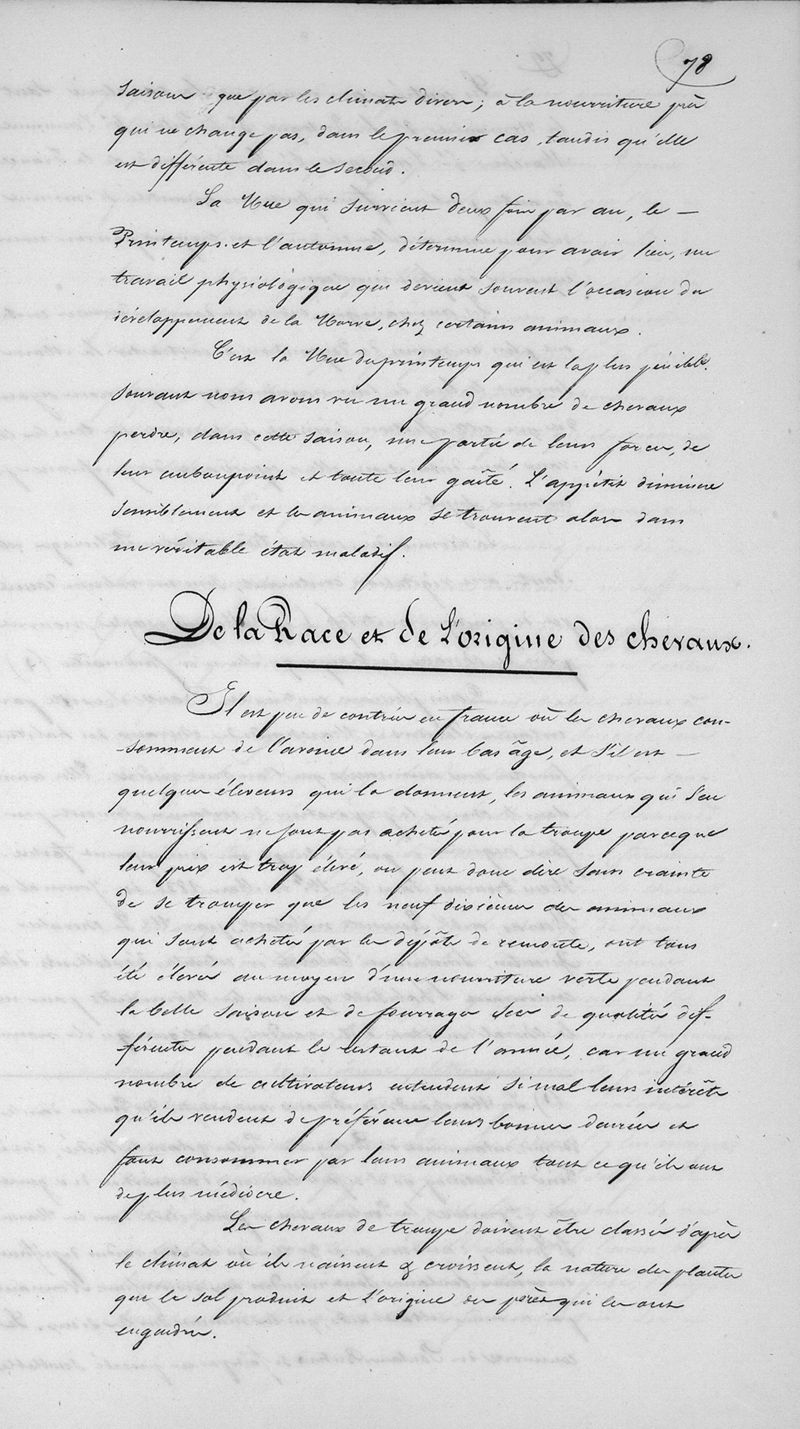 78
saisons que par les climats divers; à la nourriture près
qui ne change pas, dans le premier cas, tandis qu'elle
est différente dans le second.
La Mue qui survient deux fois par an, le —
Printemps et l'automne, détermine pour avoir lieu, un
travail physiologique qui devient souvent l'occasion du
développement de la Morve, chez certains animaux.
C'est la Mue du printemps qui est la plus pénible.
Souvent nous avons vu un grand nombre de chevaux
perdre, dans cette saison, une partie de leurs forces, de
leur embonpoint et toute leur gaîté. L'appétit diminue
sensiblement et les animaux se trouvent alors dans
un véritable état maladif.
De la Race et de L'origine des chevaux.
Il est peu de contrées en france où les chevaux con-
-somment de l'avoine dans leur bas âge, et s'il est —
quelques éleveurs qui la donnent, les animaux qui s'en
nourrissent ne sont pas achetés pour la troupe parceque
leur prix est trop élevé, on peut donc dire sans crainte
de se tromper que les neuf dixièmes des animaux
qui sont achetés par les dépôts de remonte, ont tous
été élevés au moyen d'une nourriture verte pendant
la belle saison et de fourrages secs de qualités dif-
-férentes pendant le restant de l'année, car un grand
nombre de cultivateurs entendent si mal leurs intérêts
qu'ils vendent de préférence leurs bonnes denrées et
font consommer par leurs animaux tout ce qu'ils ont
de plus médiocre.
Les chevaux de troupe doivent être classés d'après
le climat où ils naissent & croissent, la nature des plantes
que le sol produit et L'origine des pères qui les ont
engendrés.